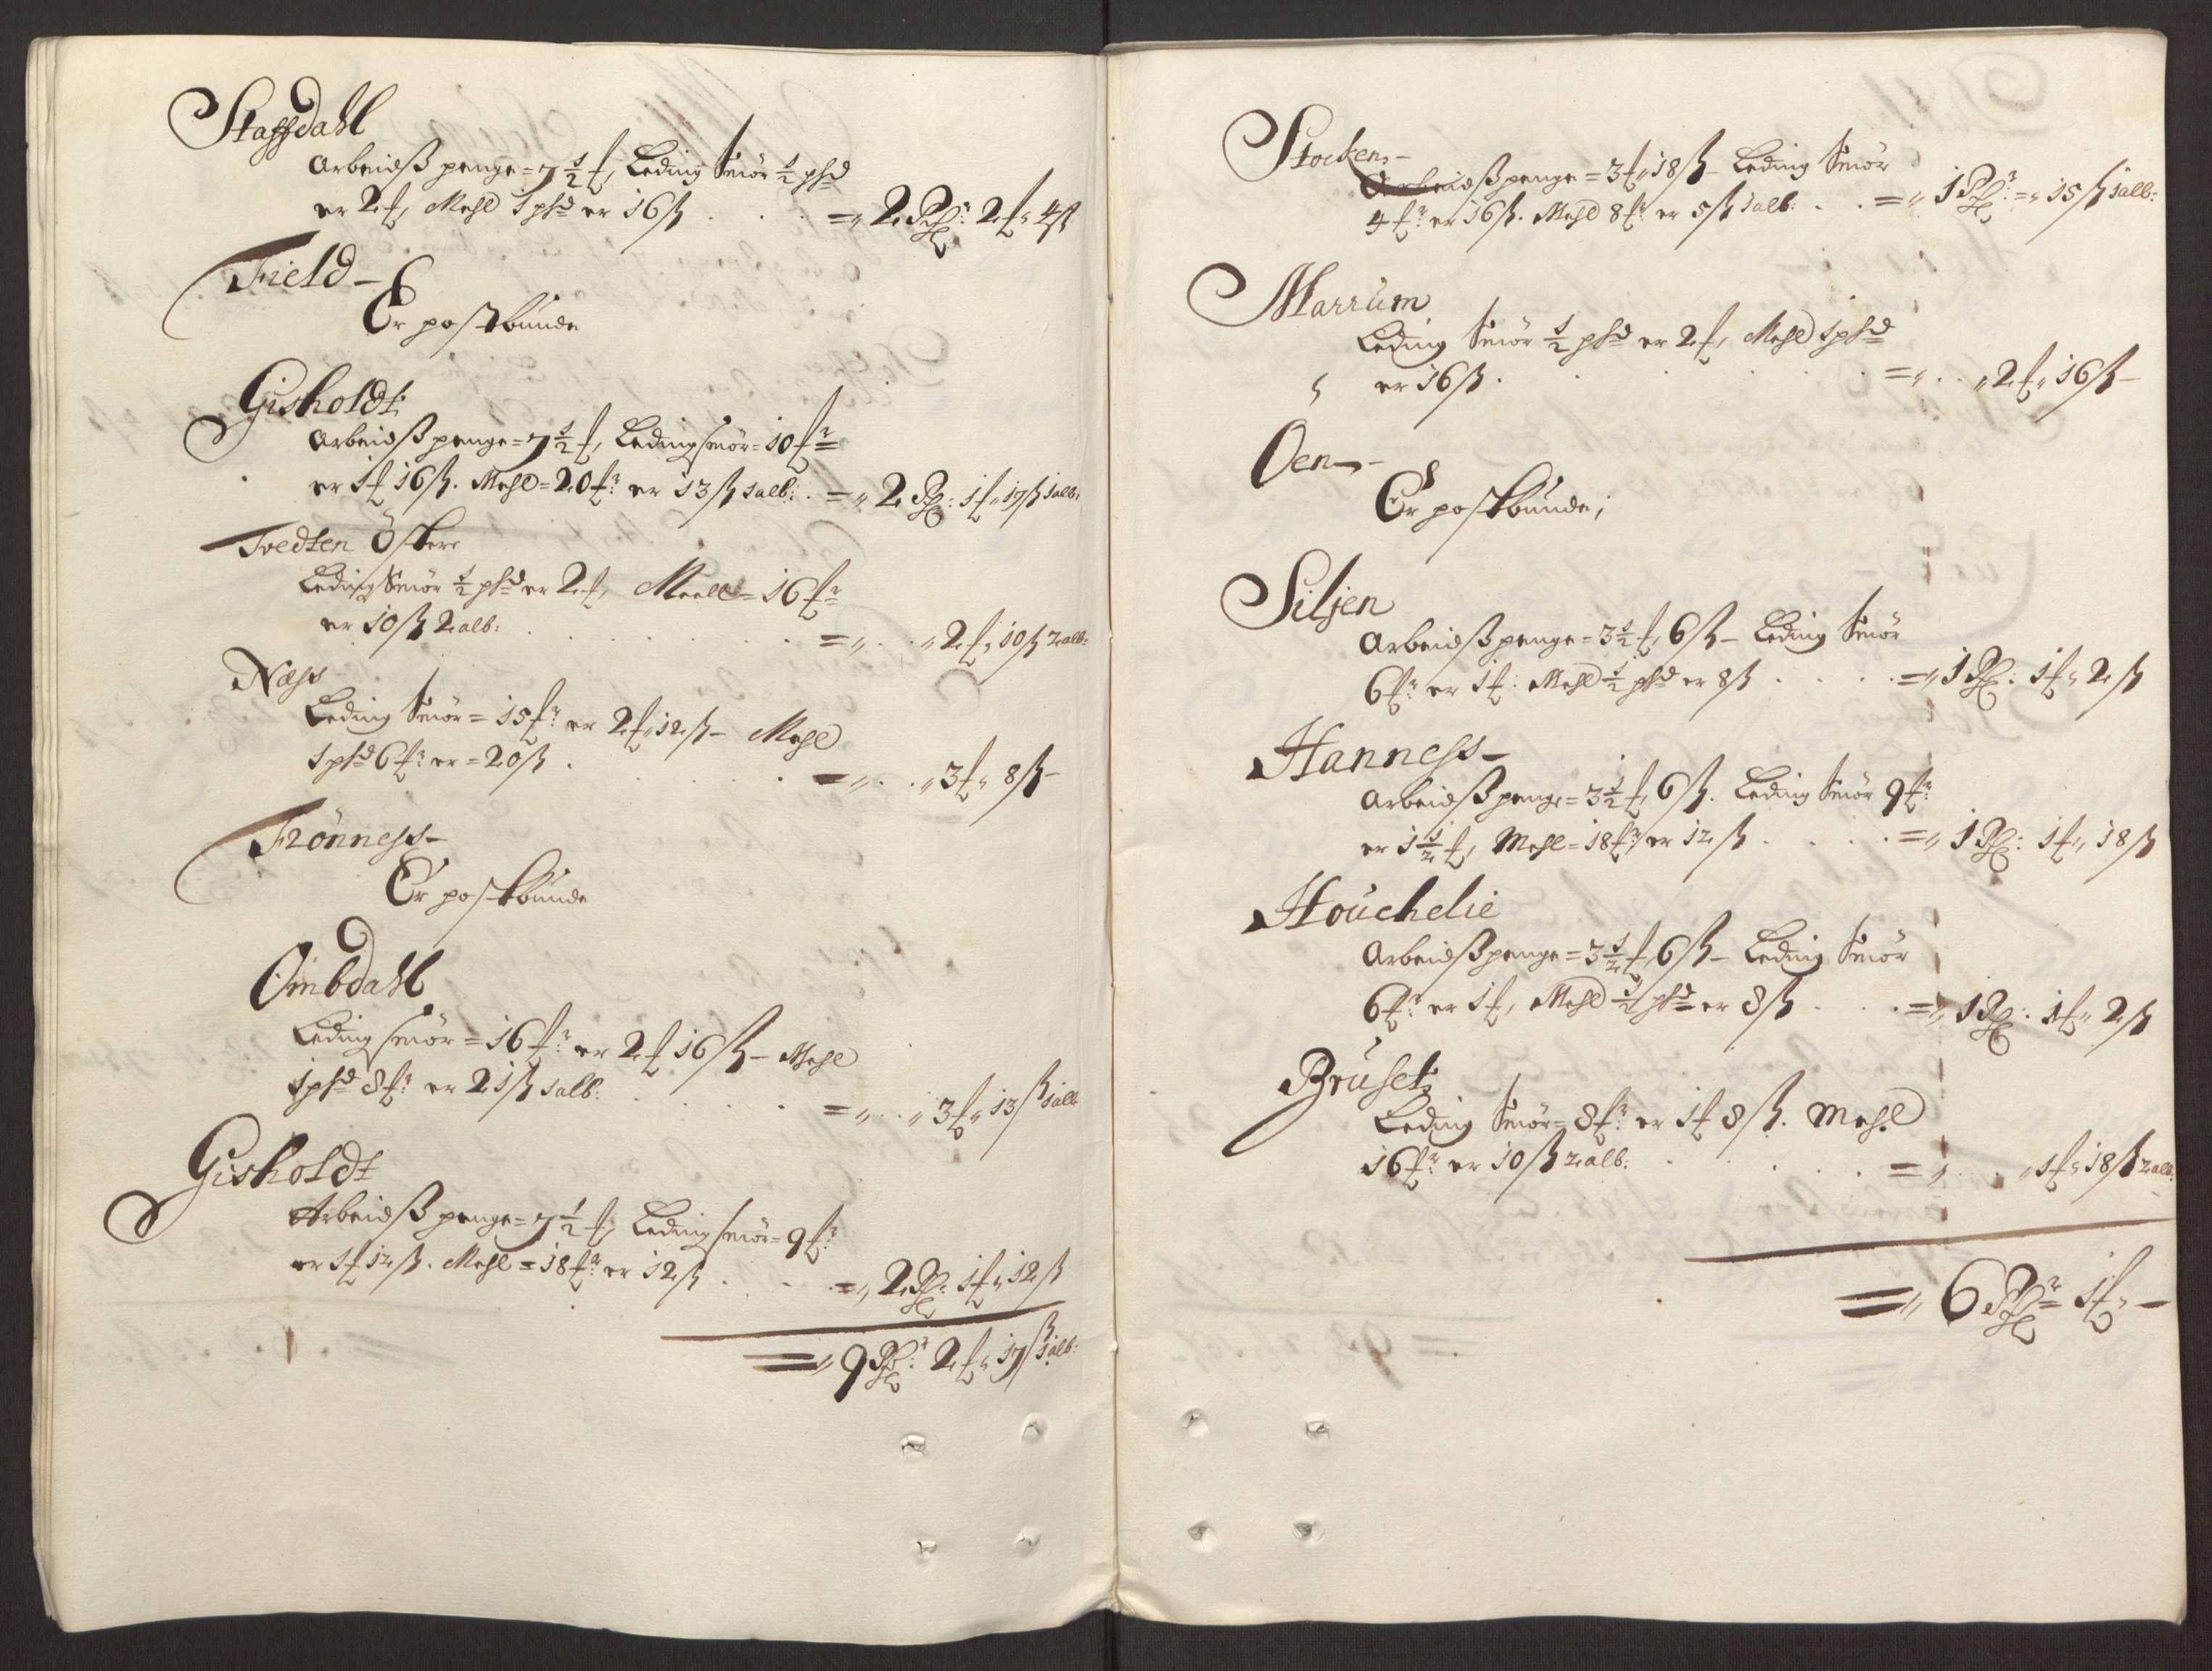 Staffdahl
Arbeidß penge = 7 1/2 f, Leding Smör 1/2 phd
er 2 f, Mehl 1 phd er 16 ß . . . =„ 2 Rdr: 2 f„ 4 ß
Field –
Er postbunde
Gisholdt
Arbeidß penge = 7 1/2 f, Leding smör = 10 fr
er 1 f 16 ß. Mehl = 20 fr er 13 ß 1 alb: . =„ 2 Rd: 1 f„ 17 ß 1 alb:
Tvedten Östere
Leding Smör 1/2 phd er 2 f, Meell = 16 fr
er 10 ß 2 alb: . . . . . . =„ . . „ 2 f„ 10 ß 2 alb:
Næss
Leding Smör = 15 fr er 2 f„ 12 ß – Mehl
1 phd 6 fr er = 20 ß . . . . . =„ . . „ 3 f„ 8 ß –
Frönness –
Er postbunde
Ombdahl
Leding smör = 16 fr er 2 f 16 ß – Mehl
1 phd 8 fr er 21 ß 1 alb: . . . . =„ . . „ 3 f„ 13 ß 1 alb
Gisholdt
Arbeidß penge = 7 1/2 f, Leding smör = 9 fr
er 1 f 12 ß. Mehl = 18 fr er 12 ß . . . =„ 2 Rd: 1 f„ 12 ß
=„ 9 Rdr: 2 f„ 17 ß 1 alb:
Stocken –
Arbeidß penge = 3 f„ 18 ß – Leding Smör
4 fr er 16 ß. Mehl 8 fr er 5 ß 1 alb: . . =„ 1 Rdr: =„ 15 ß 1 alb:
Marrum
Leding Smör 1/2 phd er 2 f, Mehl 1 phd
er 16 ß . . . . . . =„ . . „ 2 f„ 16 ß –
Oen –
Er postbunde;
Siljen
Arbeidß penge = 3 1/2 f, 6 ß – Leding Smör
6 fr er 1 f: Mehl 1/2 phd er 8 ß . . . . =„ 1 Rd: 1 f„ 2 ß
Hanness –
Arbeidß penge = 3 1/2 f, 6 ß. Leding Smör 9 fr
er 1 1/2 f, Mehl = 18 fr er 12 ß . . . . =„ 1 Rd: 1 f„ 18 ß
Houchelie
Arbeidß penge = 3 1/2 f, 6 ß – Leding Smör
6 fr er 1 f, Mehl 1/2 phd er 8 ß . . . =„ 1 Rd: 1 f„ 2 ß
Bruset
Leding Smör = 8 fr er 1 f 8 ß. Mehl
16 fr er 10 ß 2 alb: . . . . =„ . . „ 1 f„ 18 ß 2 alb:
=„ 6 Rdr 1 f„ –